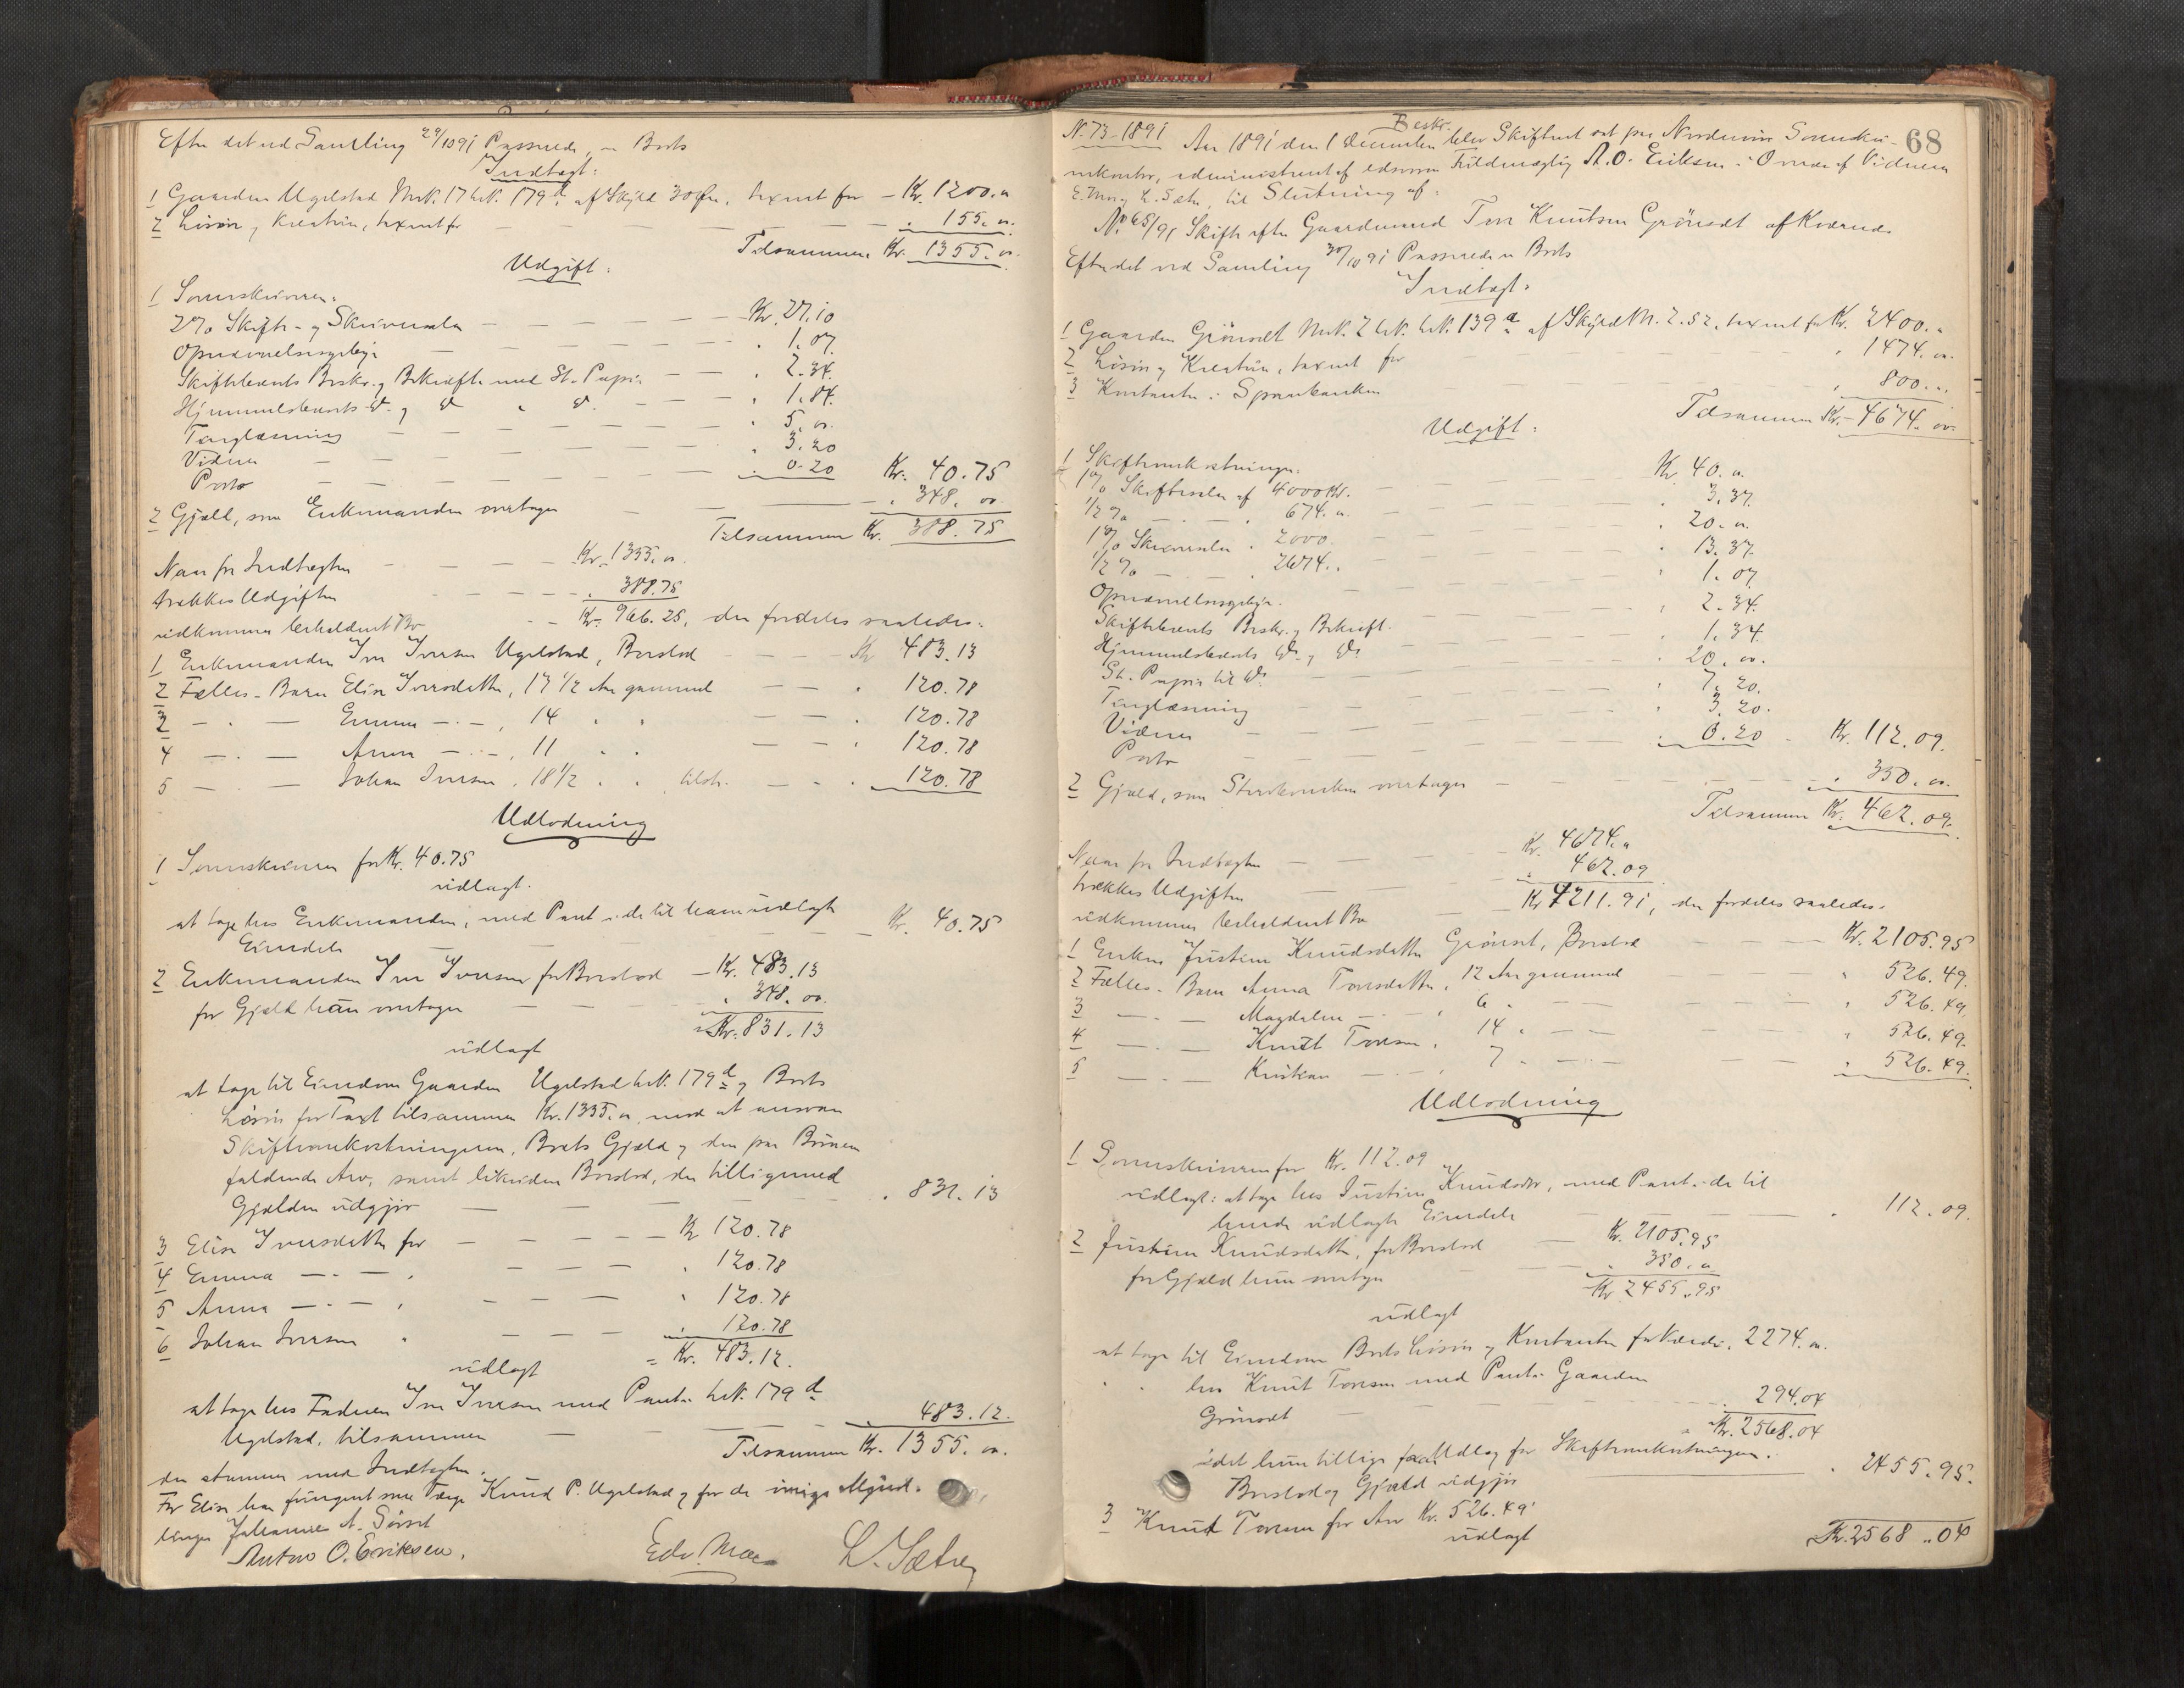 Efter det ved Samling 29/10 91 Passerede er Boets
Indtægt:
1 Gaarden Ugelstad Mrk. 17 Lbk. 179d af Skyld 30 Øre, taxeret for - Kr. 1200. "
2 Løsøre og Kreature, taxeret for — " 155. "
Tilsammen Kr. 1355. "
Udgift:
1 Sorenskriveren:
2% Skifte- og Skriversalær — Kr. 27.10
Opnævnelsesgebyr — " 1.07
Skiftebrevets Beskr. og Bekræft. med St. Papir — " 2.34
Hjemmelsbrevets do. og do " do. — " 1.84
Tinglæsning — " 5. "
Vidner — " 3.20
Porto — " 0.20 Kr. 40.75
2 Gjæld, som Enkemanden overtager — " 348. "
Tilsammen Kr. 388.75
Naar fra Indtægten — Kr. 1355. "
trækkes Udgiften — " 388.75
udkommer beholdent Bo — Kr. 966.25, der fordeles saaledes:
1 Enkemanden Iver Iversen Ugelstad, Boeslod — Kr. 483.13
2 Fælles-Barn Elise Iversdatter, 17 1/2 Aar gammel — " 120.78
3 — " — Emma — " —, 14 " " — " 120.78
4 — " — Anna — " —, 11 " " — " 120.78
5 — " — Johan Iversen, 18 1/2 " " tilst. — " 120.78
Udlodning
1 Sorenskriveren for Kr. 40.75
udlagt:
at tage hos Enkemanden, med Pant i de til ham udlagte
Eiendele — Kr. 40.75
2 Enkemanden Iver Iversen for Boeslod — Kr. 483.13
for Gjæld han overtager — " 348. "
Kr. 831.13
udlagt
at tage til Eiendom Gaarden Ugelstad Lbk. 179d og Boets
Løsøre for Taxt tilsammen Kr. 1355. " mod at ansvare
Skifteomkostningerne, Boets Gjæld og den paa Børnene
faldende Arv, samt likvidere Boeslod, der tilligemed
Gjælden udgjør — " 831.13
3 Elise Iversdatter for — Kr. 120.78
4 Emma — " — " — " 120.78
5 Anna — " — " — " 120.78
6 Johan Iversen " — " 120.78
= Kr. 483.12.
udlagt
at tage hos Faderen Iver Iversen med Pant i Lbk. 179d
Ugelstad, tilsammen — 483.12.
Tilsammen Kr. 1355. "
der stemmer med Indtægten.
For Elise har fungeret som Værge Knud P. Ugelstad og for de øvrige Mynd-
linger Johannes A. Sørset
Anton O. Eriksen. Edv. Moe L. Sætre
68
Beskr.
N. 73-1891 Aar 1891 den 1 December blev Skifteret sat paa Nordmøre Sorenskri-
verkontor, administreret af edsvoren Fuldmægtig A. O. Eriksen i Overvær af Vidnerne
E. Moe og L. Sætre, til Slutning af:
No 65/91 Skifte efter Gaardmand Tore Knutsen Grønset af Kvernes
Efter det ved Samling 30/10 91 Passerede er Boets
Indtægt:
1 Gaarden Grønset Mrk. 2 Lbk. 139a af Skyld M. 2.52, taxeret for Kr. 2400. "
2 Løsøre og Kreature, taxeret for — " 1474. "
3 Kontanter i Sparebanken — " 800. "
Tilsammen Kr. 4674. "
Udgift:
1 Skifteomkostninger:
1% Skiftesalær af 4000 Kr. — Kr. 40. "
1/2% — " 674. " — " 3.37.
1% Skriversalær " 2000. — " 20. "
1/2% — " 2674. " — " 13.37.
Opnævnelsesgebyr — " 1.07
Skiftebrevets Beskr. og Bekræft. — " 2.34
Hjemmelsbrevets do. og do — " 1.34
St. Papir til do — " 20. "
Tinglæsning — " 7.20.
Vidner — " 3.20.
Porto — " 0.20 Kr. 112.09.
2 Gjæld, som Stervboenken overtager — " 350. "
Tilsammen Kr. 462.09.
Naar fra Indtægten — Kr. 4674. "
trækkes Udgiften — " 462.09
udkommer beholdent Bo — Kr 4211.91, der fordeles saaledes:
1 Enken Justine Knudsdatter Grønset, Boeslod — Kr. 2105.95
2 Fælles-Barn Anna Toresdatter, 12 Aar gammel — " 526.49.
3 — " — Magdalene — " — 6 " — " 526.49.
4 — " — Knut Toresen, 14 " — " 526.49.
5 — " — Kristian — " —, 7 " — " 526.49.
Udlodning
1 Sorenskriveren for Kr. 112.09
udlagt: at tage hos Justine Knudsdtr, med Pant i de til
hende udlagte Eiendele — " 112.09.
2 Justine Knudsdatter, for Boeslod — Kr. 2105.95
for Gjæld hun overtager — " 350. "
Kr. 2455.95
udlagt
at tage til Eiendom Boets Løsøre og Kontanter for Værdi. 2274. "
" " hos Knut Toresen med Pant i Gaarden
Grønset — " 294.04
Kr. 2568.04
idet hun tillige faar Udlæg for Skifteomkostningerne.
Boeslod og Gjæld udgjør — " 2455.95.
3 Knut Toresen for Arv Kr. 526.49
udlagt
Kr. 2568.04